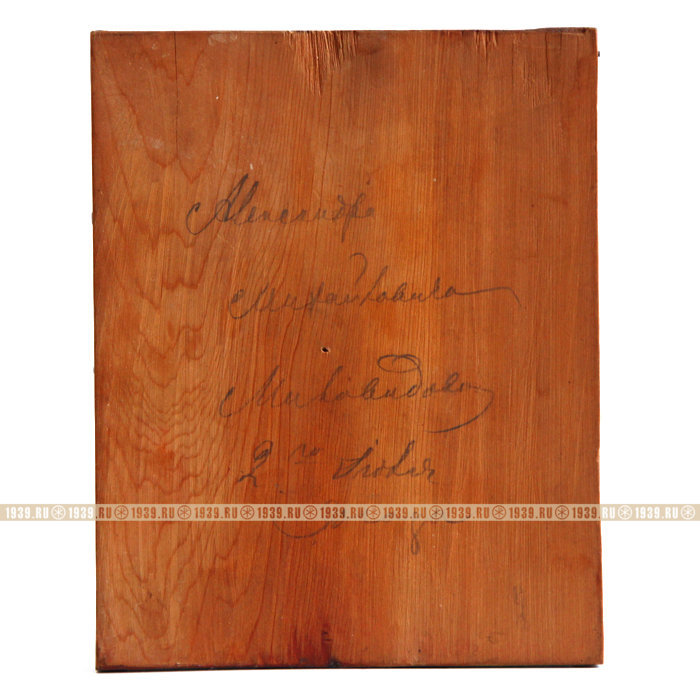 Александра
Михайловича
Миловидова
2го Іюля
1939.RU 1939.RU 1939.RU 1939.RU 1939.RU 1939.RU 1939.RU 1939.RU 1939.RU 1939.RU 1939.RU